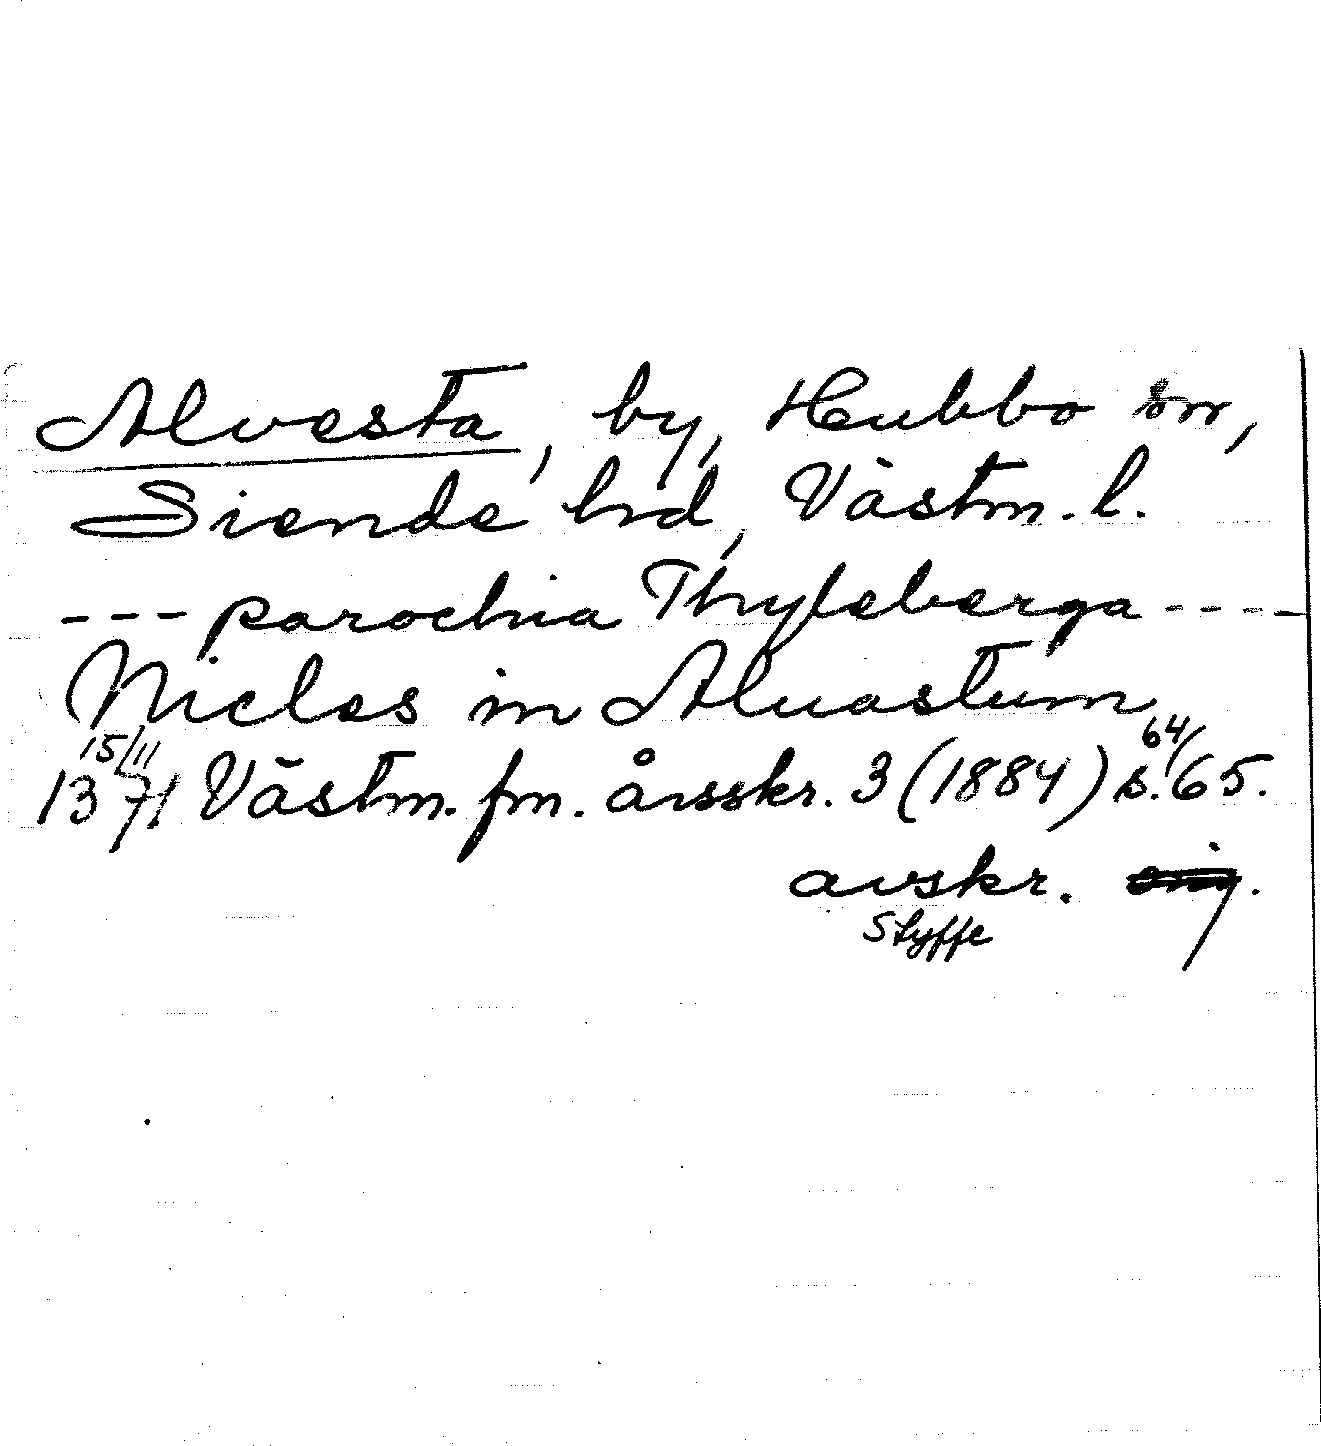 Alvesta, by, Hubbo sn,
Siende hrd, Västm. l.
--- parochia Thyleberga ----
Nicles in Aluastum
15/11
1371 Västm. fm. årsskr. 3 (1884) s. 64/65.
avskr.
Styffe